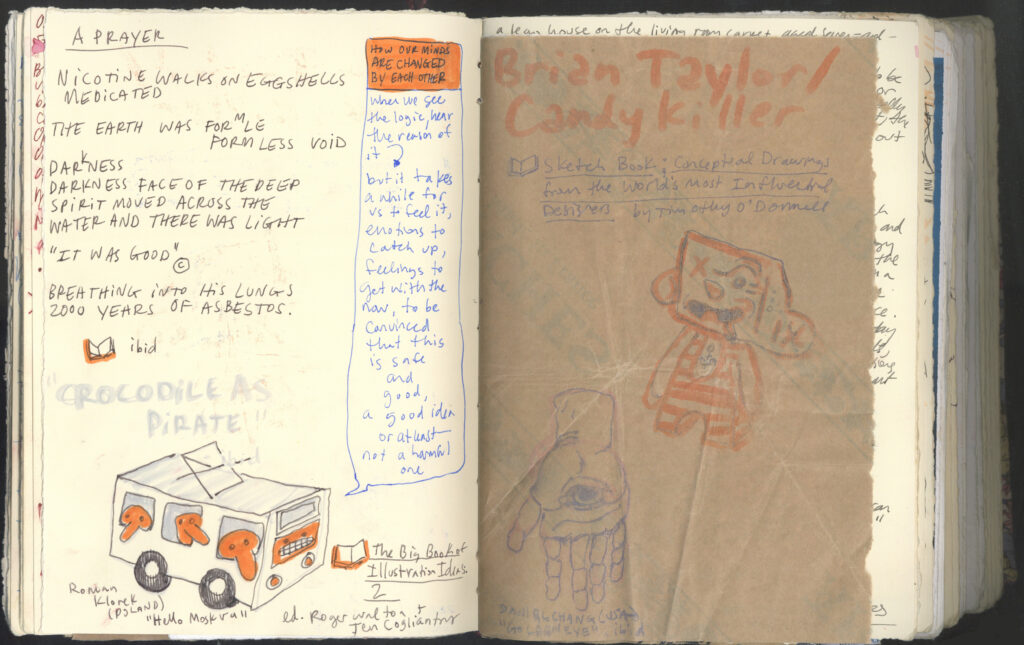 A PRAYER
NICOTINE WALKS ON EGGSHELLS
MEDICATED
THE EARTH WAS FORMLE
FORMLESS VOID
DARKNESS
DARKNESS FACE OF THE DEEP
SPIRIT MOVED ACROSS THE
WATER AND THERE WAS LIGHT
"IT WAS GOOD" ©
BREATHING INTO HIS LUNGS
2000 YEARS OF ASBESTOS.
ibid
"CROCODILE AS
PIRATE"
ibid
Roman
Klorek
(POLAND)
"Hello Moskva"
HOW OUR MINDS
ARE CHANGED
BY EACH OTHER
when we see
the logic, hear
the reason of
it
but it takes
a while for
us to feel it,
emotions to
catch up,
feelings to
get with the
now, to be
convinced
that this
is safe
and
good,
a good idea
or at least
not a harmful
one
The Big Book of
Illustration Ideas
2
ed. Roger Walton +
Jen Cogliantry
a lean house on the living room carpet
Brian Taylor/
Candy Killer
Sketch Book: Conceptual Drawings
from the World's Most Influential
Designers by Timothy O'Donnell
IX
DANIEL CHANG (USA)
"GOLDEN EYE" ibid